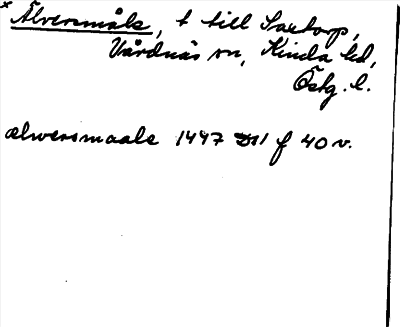 x Älversmåla, t till Saxtorp,
Vårdnäs sn, Kinda hd,
Östg. l.
ælwersmaala 1447 f 40 v.